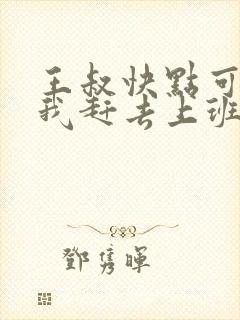 王叔快點可
我赶去上班
鄧雋暉